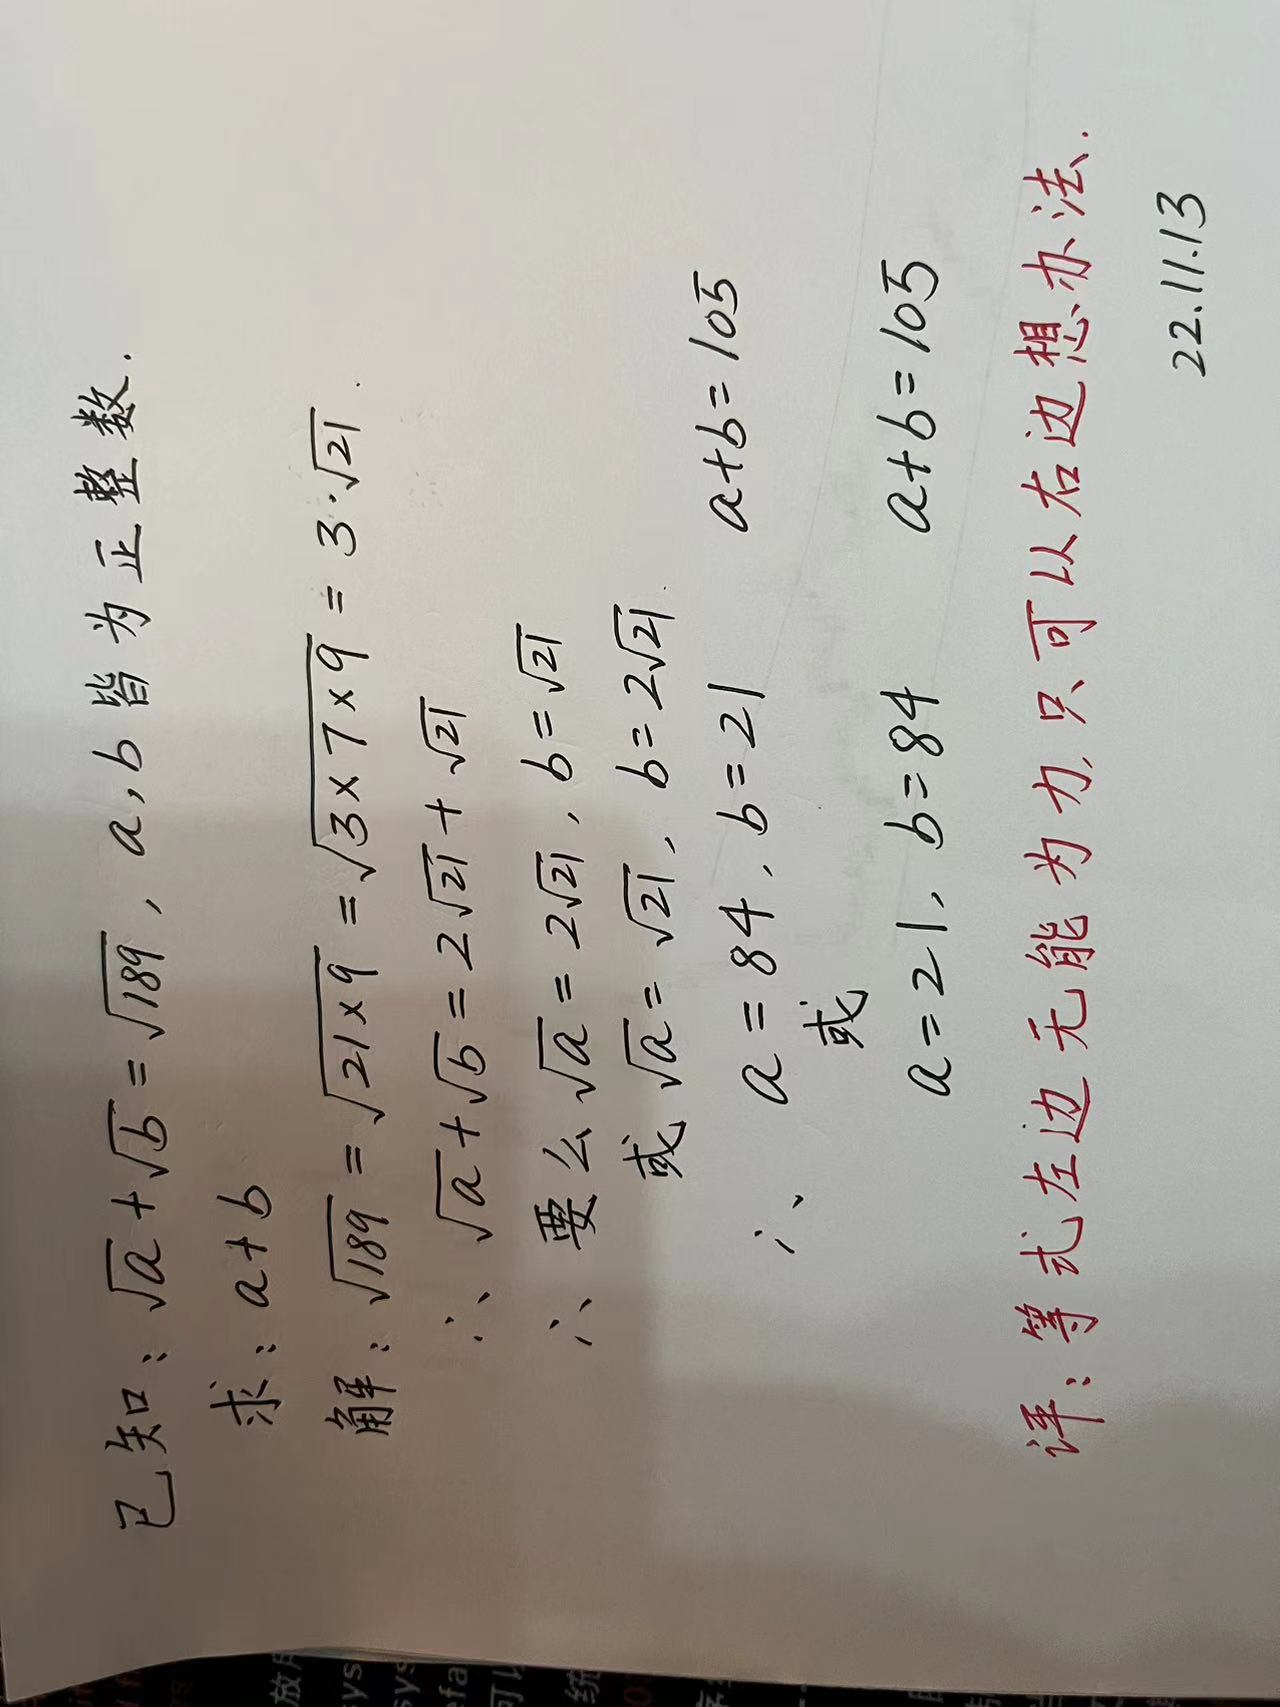 已知：√a + √b = √189，a，b 皆为正整数.
求：a+b
解：√189 = √21×9 = √3×7×9 = 3·√21.
∴ √a + √b = 2√21 + √21
∴ 要么 √a = 2√21，b = √21
或 √a = √21，b = 2√21.
∴ a = 84，b = 21 a+b = 105
或
a = 21，b = 84 a+b = 105
评：等式左边无能为力，只可以右边想办法.
22.11.13
放
sys
sys
efa
可以
统
序